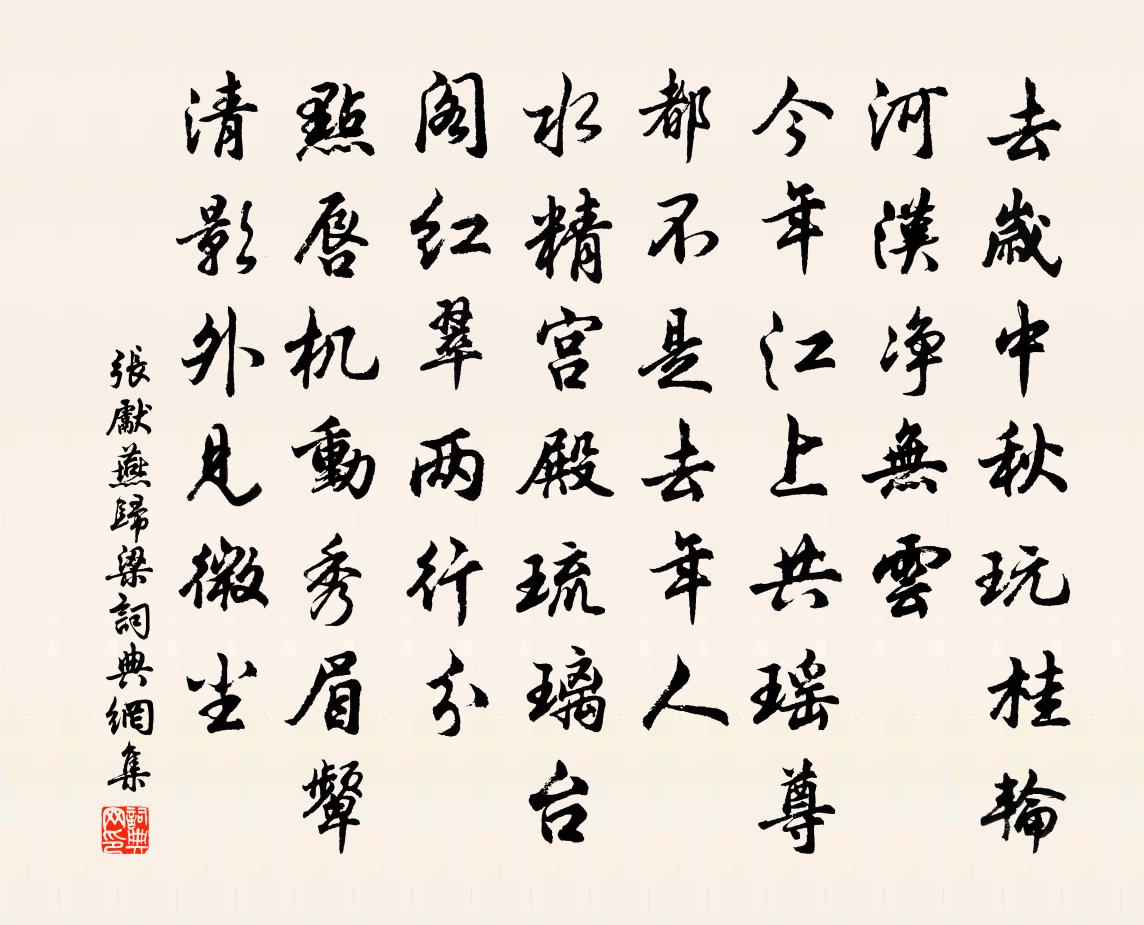 去歲中秋玩桂輪
河漢净無雲
今年江上共瑶尊
都不是去年人
水精宫殿琉璃台
阁红翠两行分
點唇机動秀眉顰
清影外見微尘
張獻燕歸梁詞典網集
詞典网印